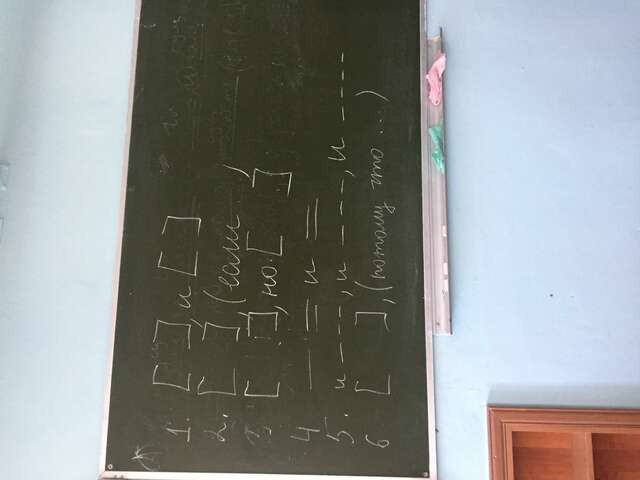 1. [ ], и [ ]
2. [ ], (если ...)
3 [ ], но [ ]
4 — = и =
5. и ----, и ----, и ----
6 [ ], (потому что ...)